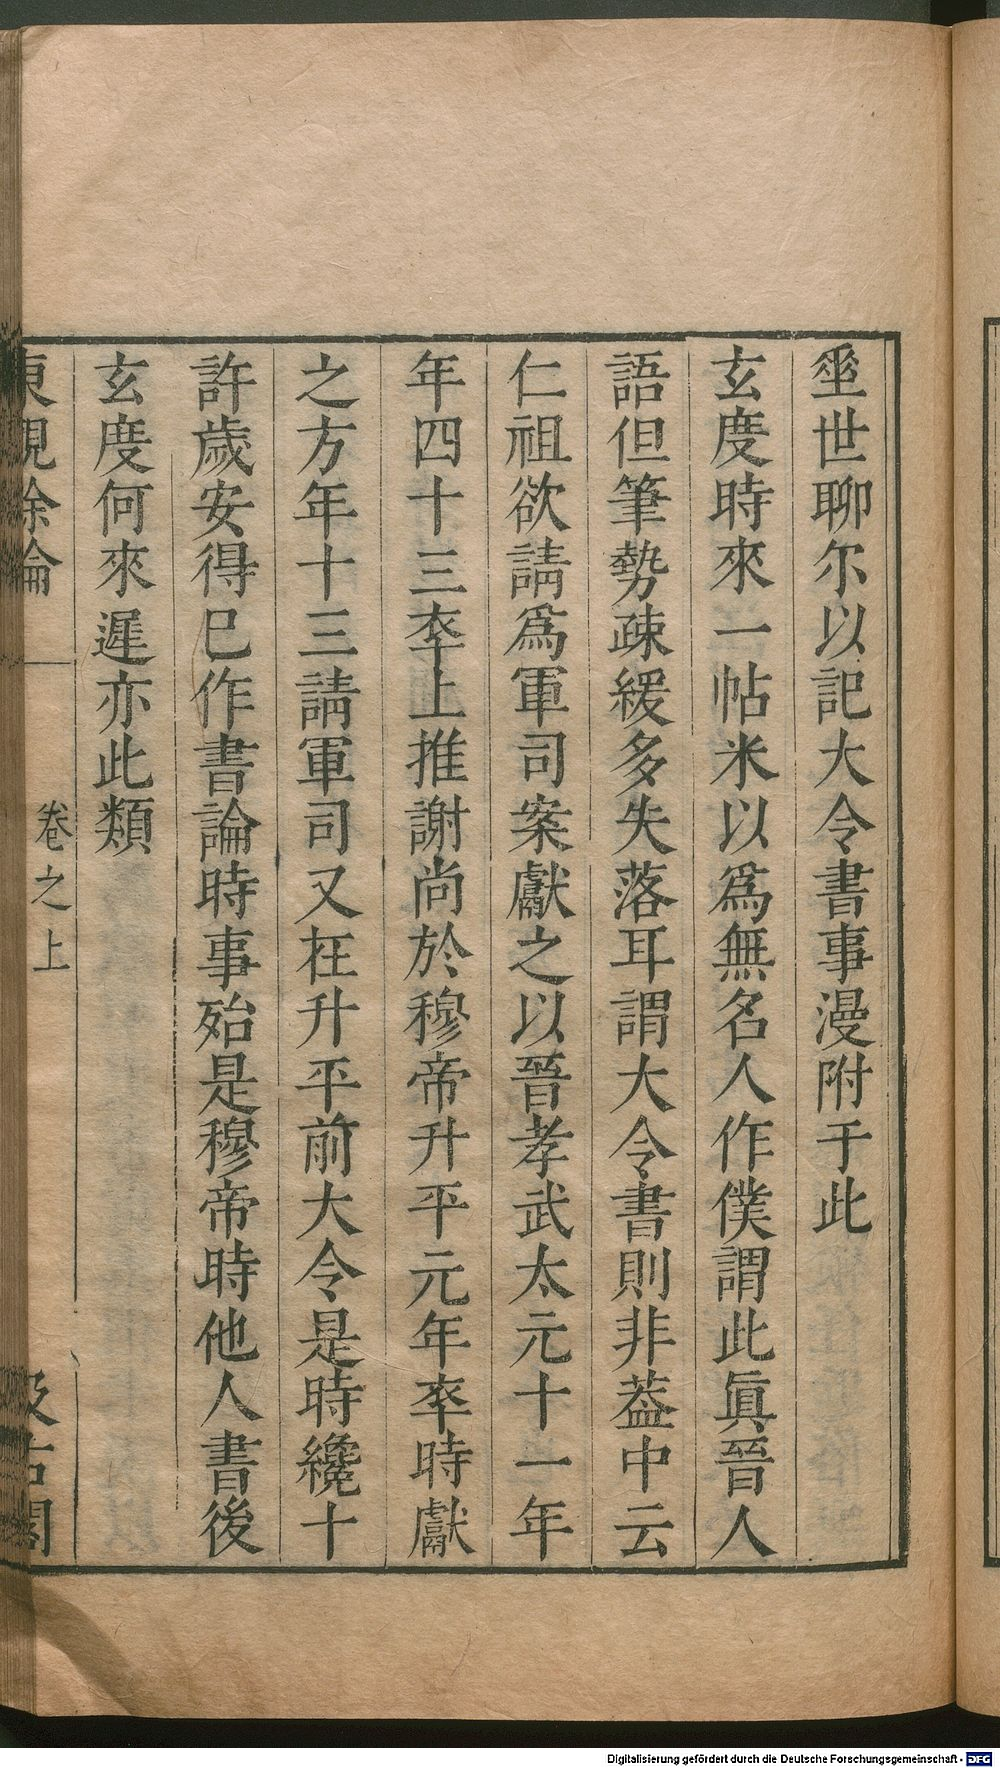 坐世聊尔以記大令書事漫附于此
玄度時來一帖米以爲無名人作僕謂此眞晉人
語但筆勢疎緩多失落耳謂大令書則非葢中云
仁祖欲請爲軍司案獻之以晉孝武太元十一年
年四十三卒上推謝尚於穆帝升平元年卒時獻
之方年十三請軍司又在升平前大令是時纔十
許歲安得已作書論時事殆是穆帝時他人書後
玄度何來遲亦此類
東觀余論
卷之上
汲古閣
Digitalisierung gefördert durch die Deutsche Forschungsgemeinschaft - DFG